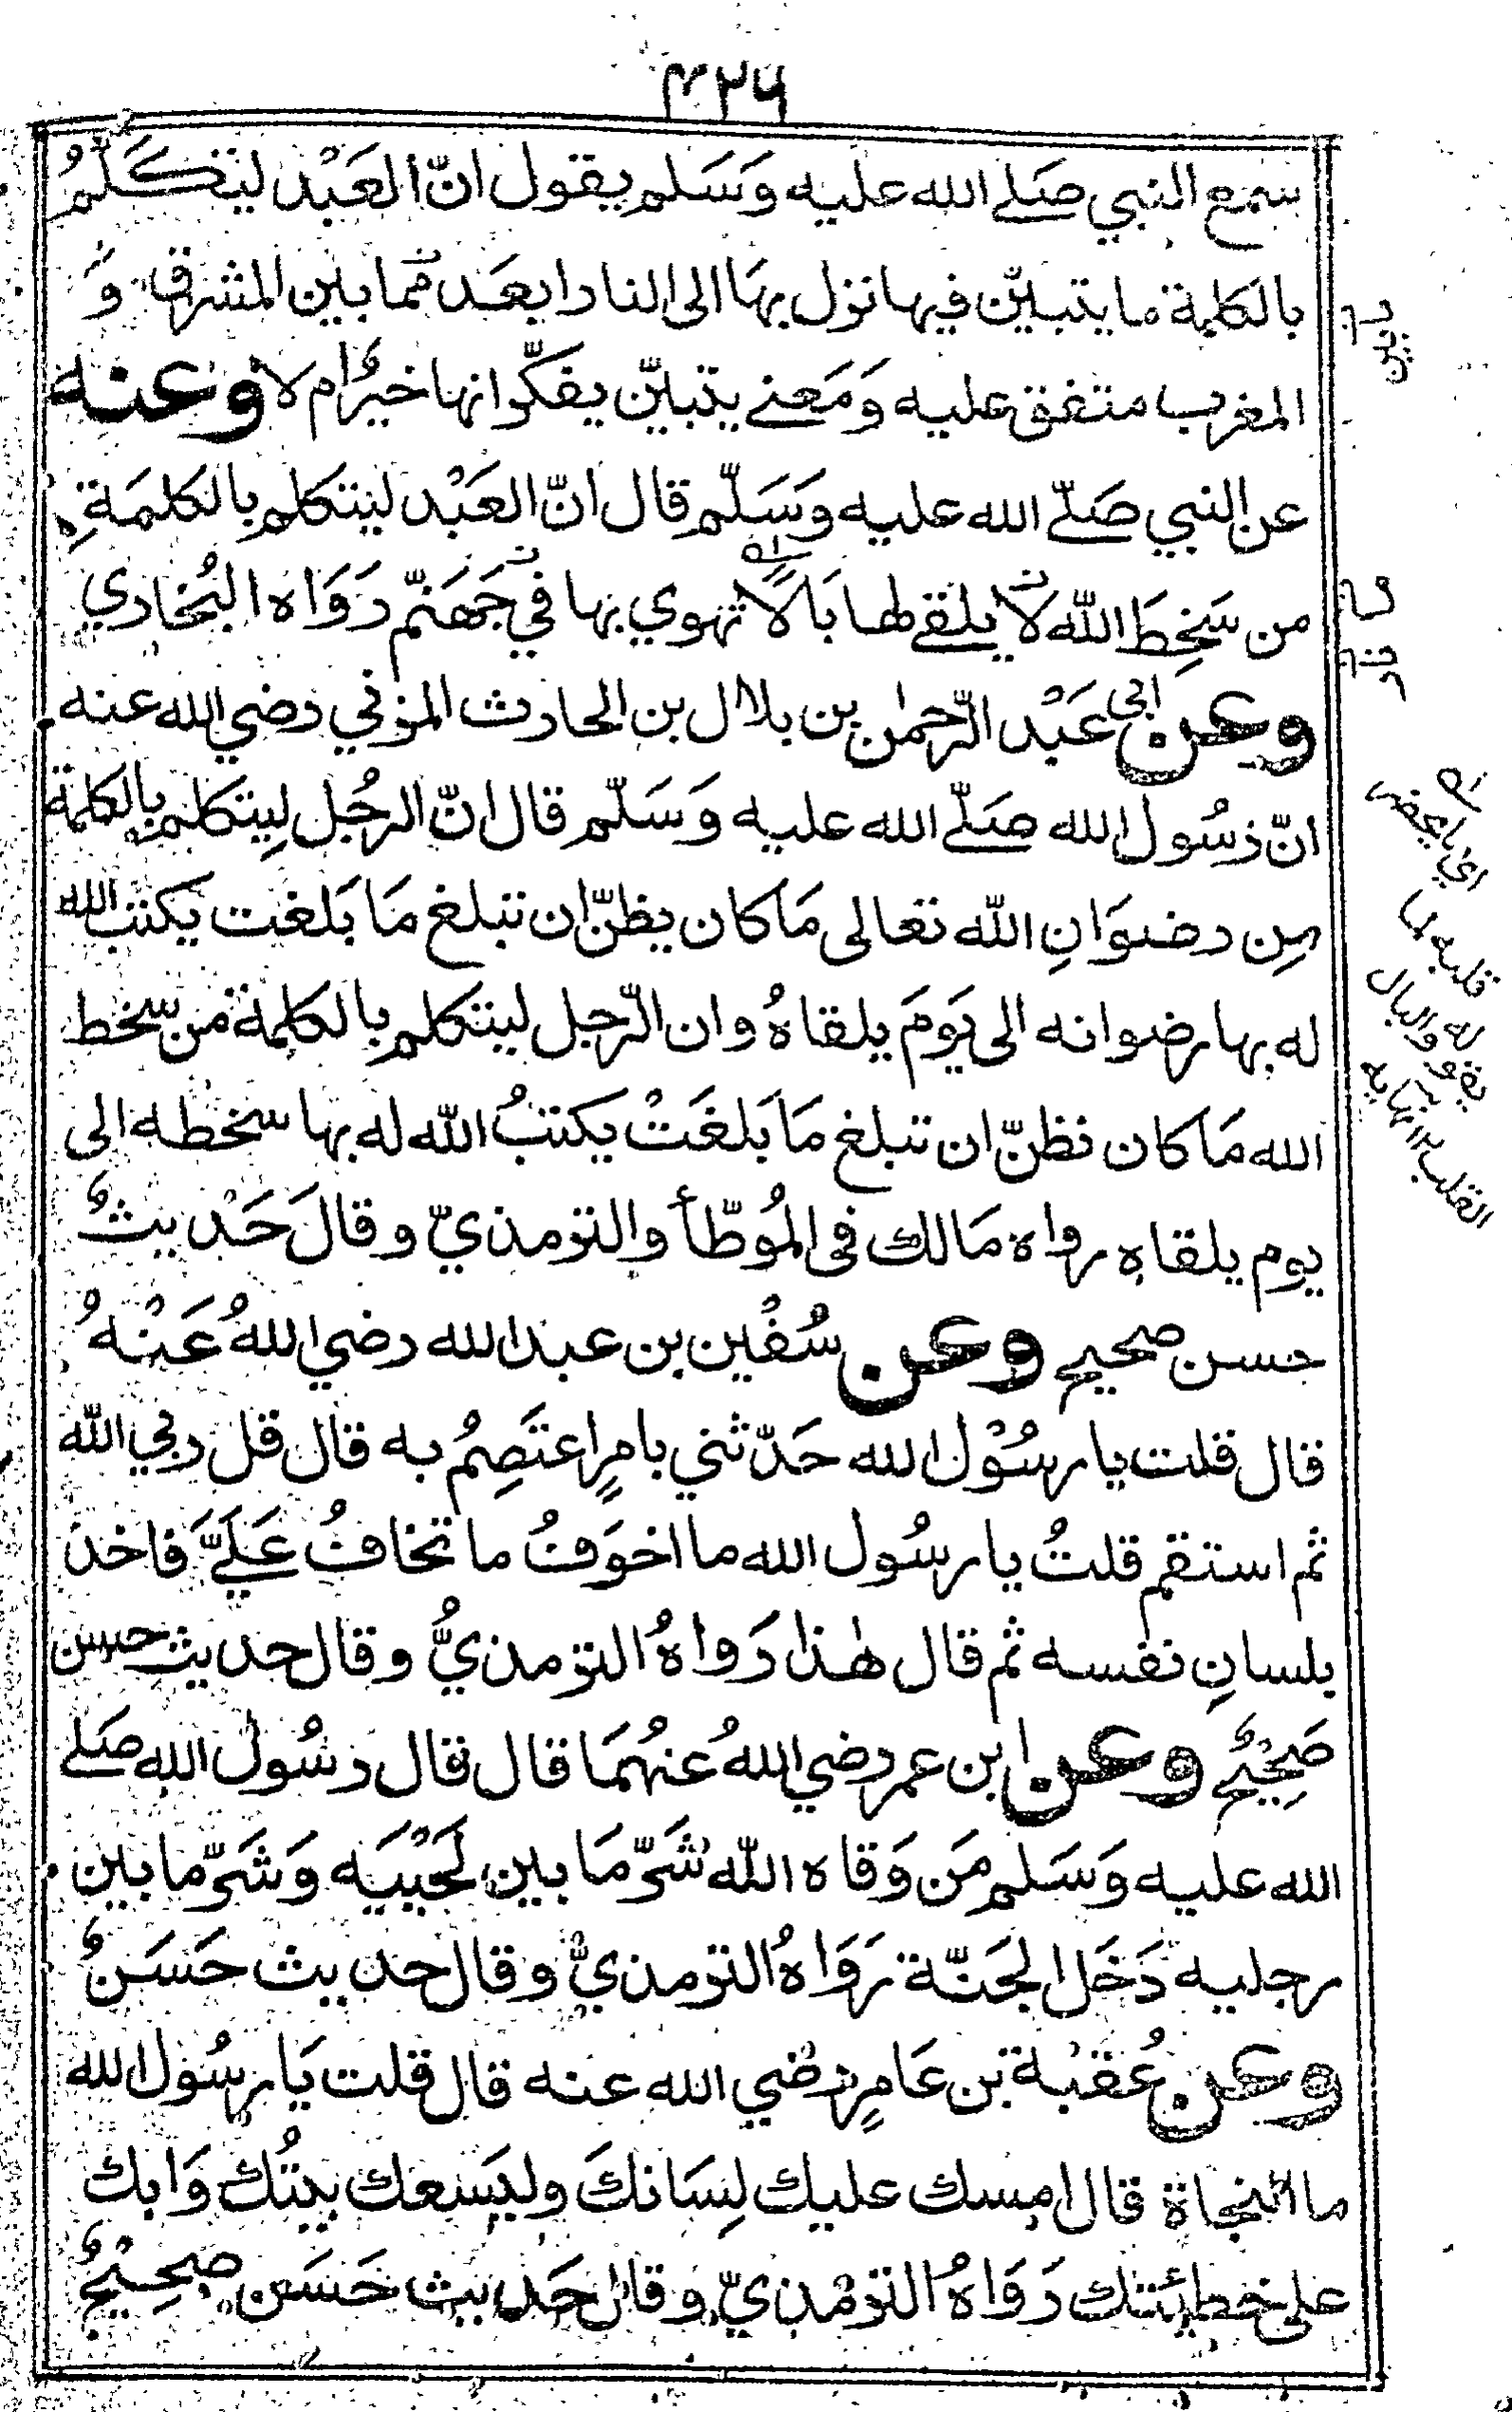 ٣٢٦
سمع النبي صَلے الله عليه وَسَلم يقول انّ العَبْد ليتكَلّمُ
بالكلمة ما يتبيّن فيها نزل بهَا الى النار ابعَد ممّا بين المشرق وَ
المغرب متفق عليه وَمَعنے يتبيّن يفكّر انها خيرٌ ام لا وعنه
عن النبي صَلّے الله عليه وَسَلّم قال انّ العَبْد ليتكلم بالكلمَةِ
من سَخِطَ اللّٰه لا يلقے لها بَالًا تهوي بها في جَهَنّم رَوَاه البُخاري
وعن ابي عَبْد الرّحمٰن بن بلال بن الحارث المزني رضي الله عنه
انّ رسُول الله صَلّے الله عليه وَسَلّم قال انّ الرجُل لِيتكلم بالكلمة
مِن رضوَانِ اللّٰه تعالى مَا كان يظنّ ان تبلغ مَا بَلغت يكتب الله
له بها رضوانه الى يَومَ يلقاهُ وان الرّجل ليتكلم بالكلمة من سخط
الله مَا كان نظنّ ان تبلغ مَا بَلغَتْ يكتبُ اللّٰه له بها سخطه الى
يوم يلقاه رواه مَالك فى المُوطّأ والترمذيّ وقالَ حَديثٌ
حسن صحيح وعن سُفْين بن عبد الله رضي اللهُ عَنْهُ
قال قلت يا رسُوْل الله حَدّثني بامرٍ اعتَصِمُ به قال قل ربي اللّٰه
ثم استقم قلتُ يا رسُول الله ما اخوَفُ ما تخافُ عَلَيَّ فاخذ
بلسانِ نفسه ثم قال هٰذا رَواهُ الترمذيُّ وقال حديث حسن
صَحِيْحٌ وعن ابن عمر رضي اللهُ عنهُمَا قال قال رسُول الله صَلے
الله عليه وَسَلم مَن وَقاه اللّٰه شَرّ مَا بين لَحْيَيَه وَشَرّ ما بين
رجليه دَخَل الجَنّة رَوَاهُ الترمذيُّ وقال حديث حَسَنٌ
وعن عُقبْة بن عَامِرٍ رضي الله عنه قال قلت يَا رسُول الله
ما النجاة قال امسك عليك لِسَانكَ وليَسَعك بيتُك وَابك
على خطيئتك رَوَاهُ الترْمذيّ وقال حَديث حَسَن صَحِيْحٌ
اي يا يحضر
قلبه لما
له
يقو والبال
القلب ١٢ نهايه